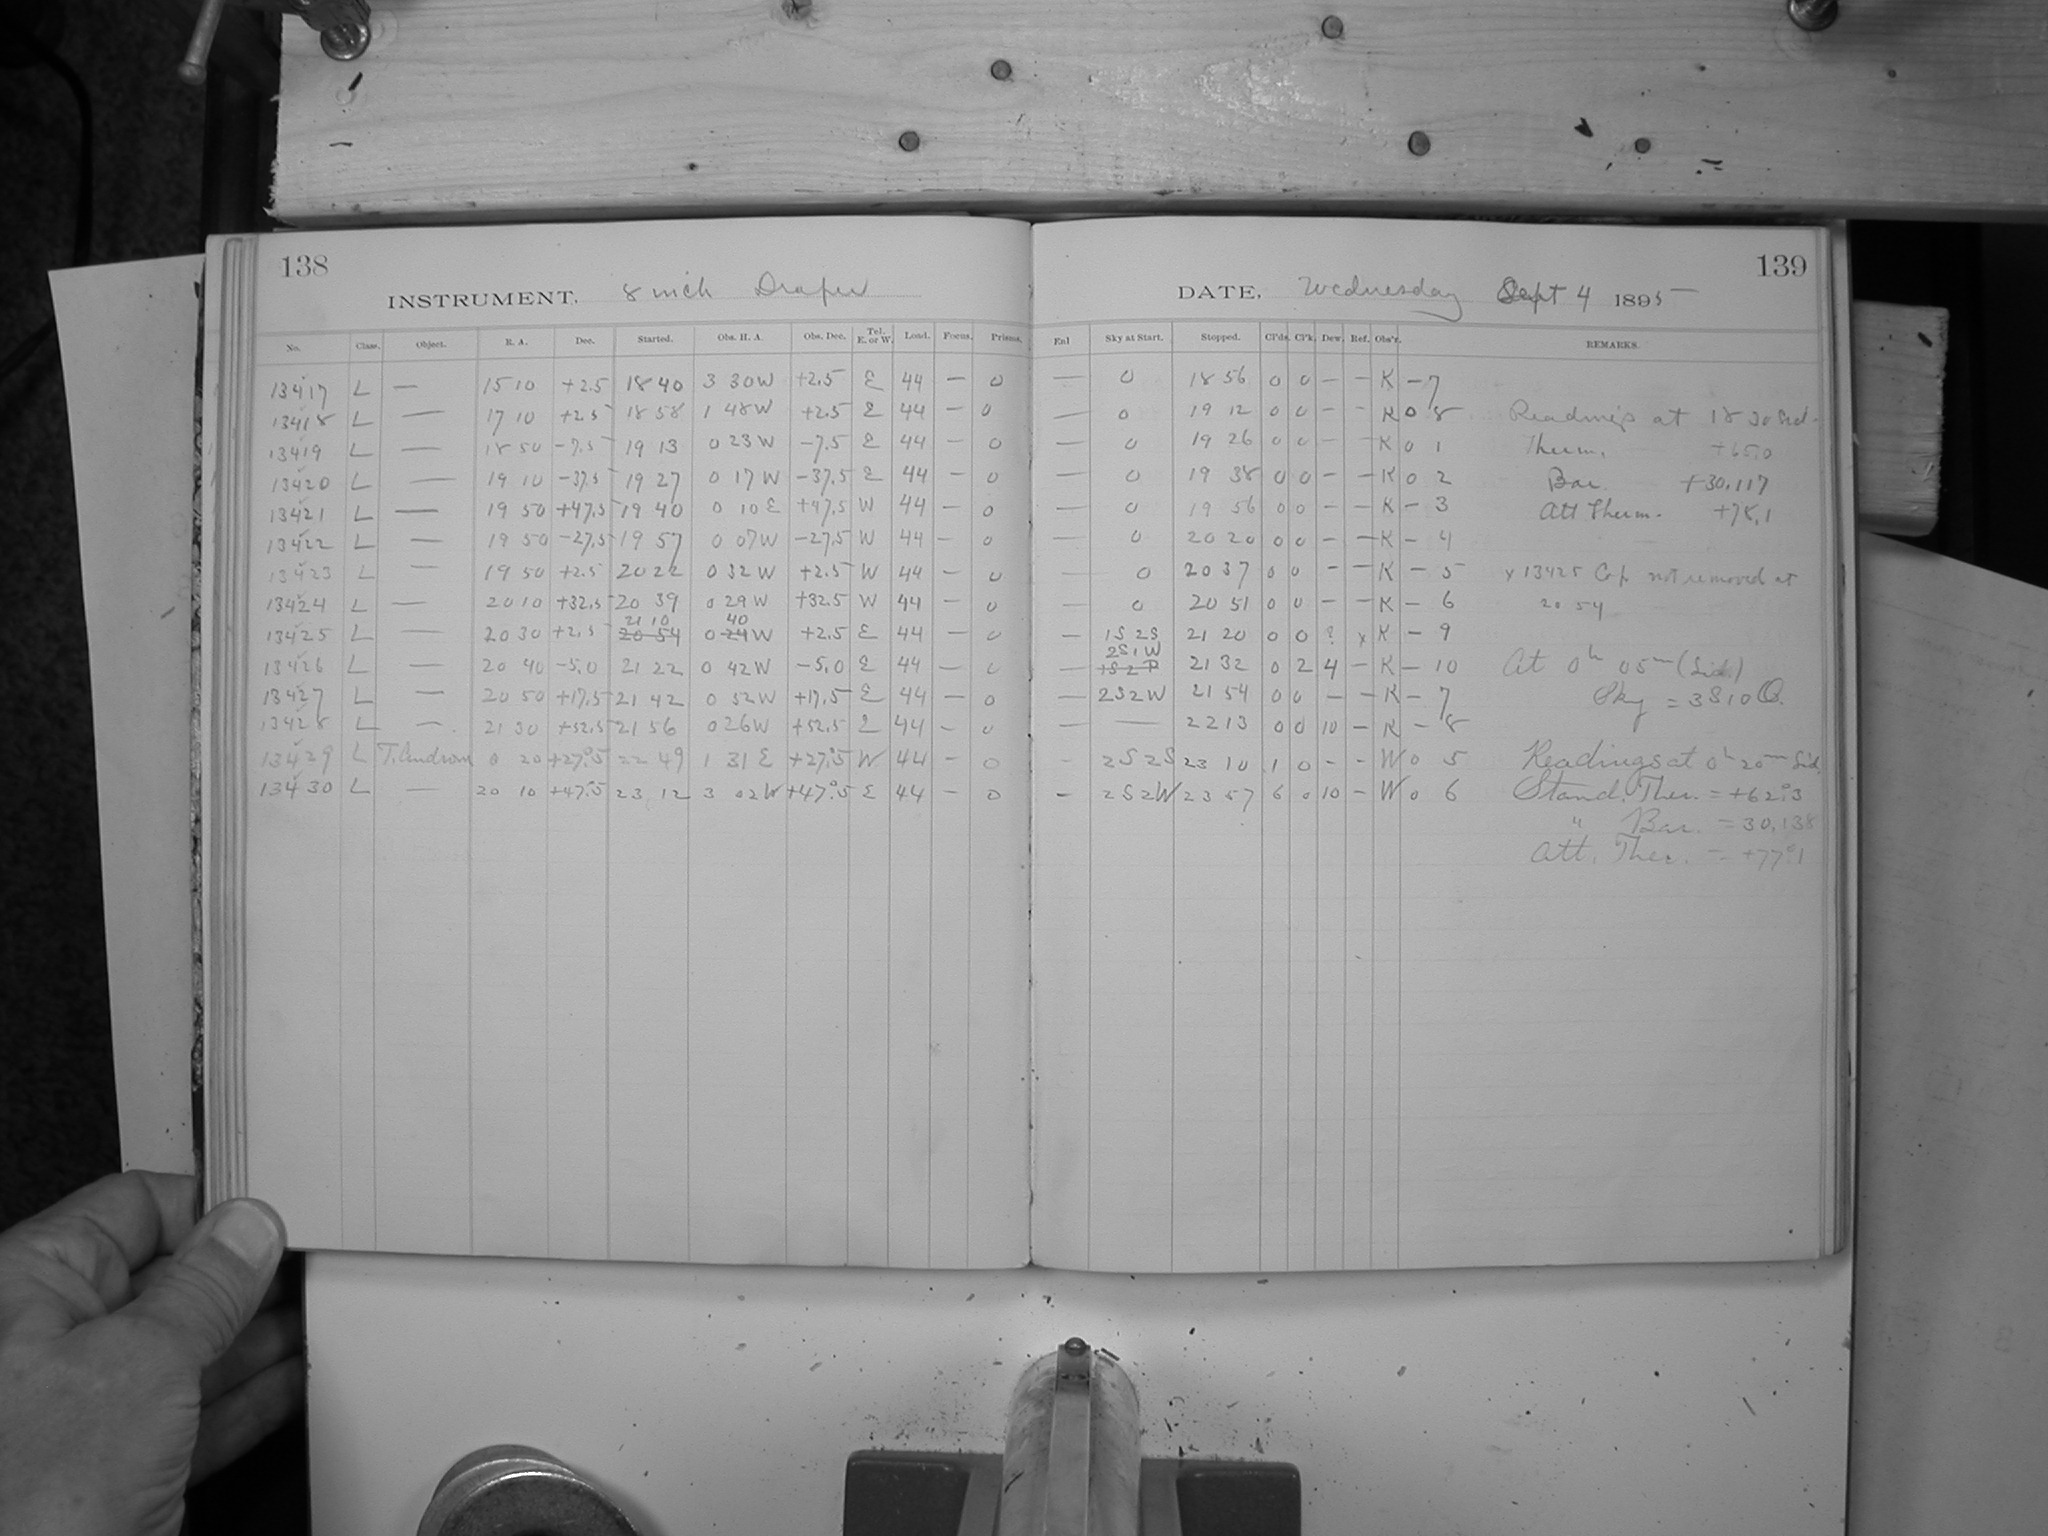 138
INSTRUMENT. 8 inch Draper
No. Class. Object. R. A. Dec. Started. Obs. H. A. Obs. Dec. Tel. E. or W. Load. Focus. Prisms.
13417 L — 15 10 +2.5 18 40 3 30 W +2.5 E 44 — 0
13418 L — 17 10 +2.5 18 58 1 48 W +2.5 E 44 — 0
13419 L — 18 50 -7.5 19 13 0 23 W -7.5 E 44 — 0
13420 L — 19 10 -37.5 19 27 0 17 W -37.5 E 44 — 0
13421 L — 19 50 +47.5 19 40 0 10 E +47.5 W 44 — 0
13422 L — 19 50 -27.5 19 57 0 07 W -27.5 W 44 — 0
13423 L — 19 50 +2.5 20 22 0 32 W +2.5 W 44 — 0
13424 L — 20 10 +32.5 20 39 0 29 W +32.5 W 44 — 0
21 10 40
13425 L — 20 30 +2.5 20 54 0 24 W +2.5 E 44 — 0
13426 L — 20 40 -5.0 21 22 0 42 W -5.0 E 44 — 0
13427 L — 20 50 +17.5 21 42 0 52 W +17.5 E 44 — 0
13428 L — 21 30 +52.5 21 56 0 26 W +52.5 E 44 — 0
13429 L T. Androm 0 20 +27°.5 22 49 1 31 E +27°.5 W 44 — 0
13430 L — 20 10 +47°.5 23 12 3 02 W +47°.5 E 44 — 0
139
DATE, Wednesday Sept 4 1895
Enl Sky at Start. Stopped. Cl'ds. Cl'k. Dew. Ref. Obs'r. REMARKS.
— 0 18 56 0 0 — — K — 7
— 0 19 12 0 0 — — K 0 8 Readings at 18 30 Sid.
— 0 19 26 0 0 — — K 0 1 Therm. +65.0
— 0 19 38 0 0 — — K 0 2 Bar. +30.117
— 0 19 56 0 0 — — K — 3 Att Therm. +78.1
— 0 20 20 0 0 — — K — 4
— 0 20 37 0 0 — — K — 5 x 13425 Cap not removed at
— 0 20 51 0 0 — — K — 6 20 54
— 1S 2S 21 20 0 0 ? x K — 9
2S 1W
— 1S 2P 21 32 0 2 4 — K — 10 At 0h 05m (Sid.)
— 2S2W 21 54 0 0 — — K — 7 Sky = 3S10
— — 22 13 0 0 10 — K — 8
- 2S 2S 23 10 1 0 — — W 0 5 Readings at 0h 20m Sid.
- 2S2W 23 57 6 0 10 — W 0 6 Stand. Ther. = +62°.3
" Bar. = 30.138
Att. Ther. = +77°.1